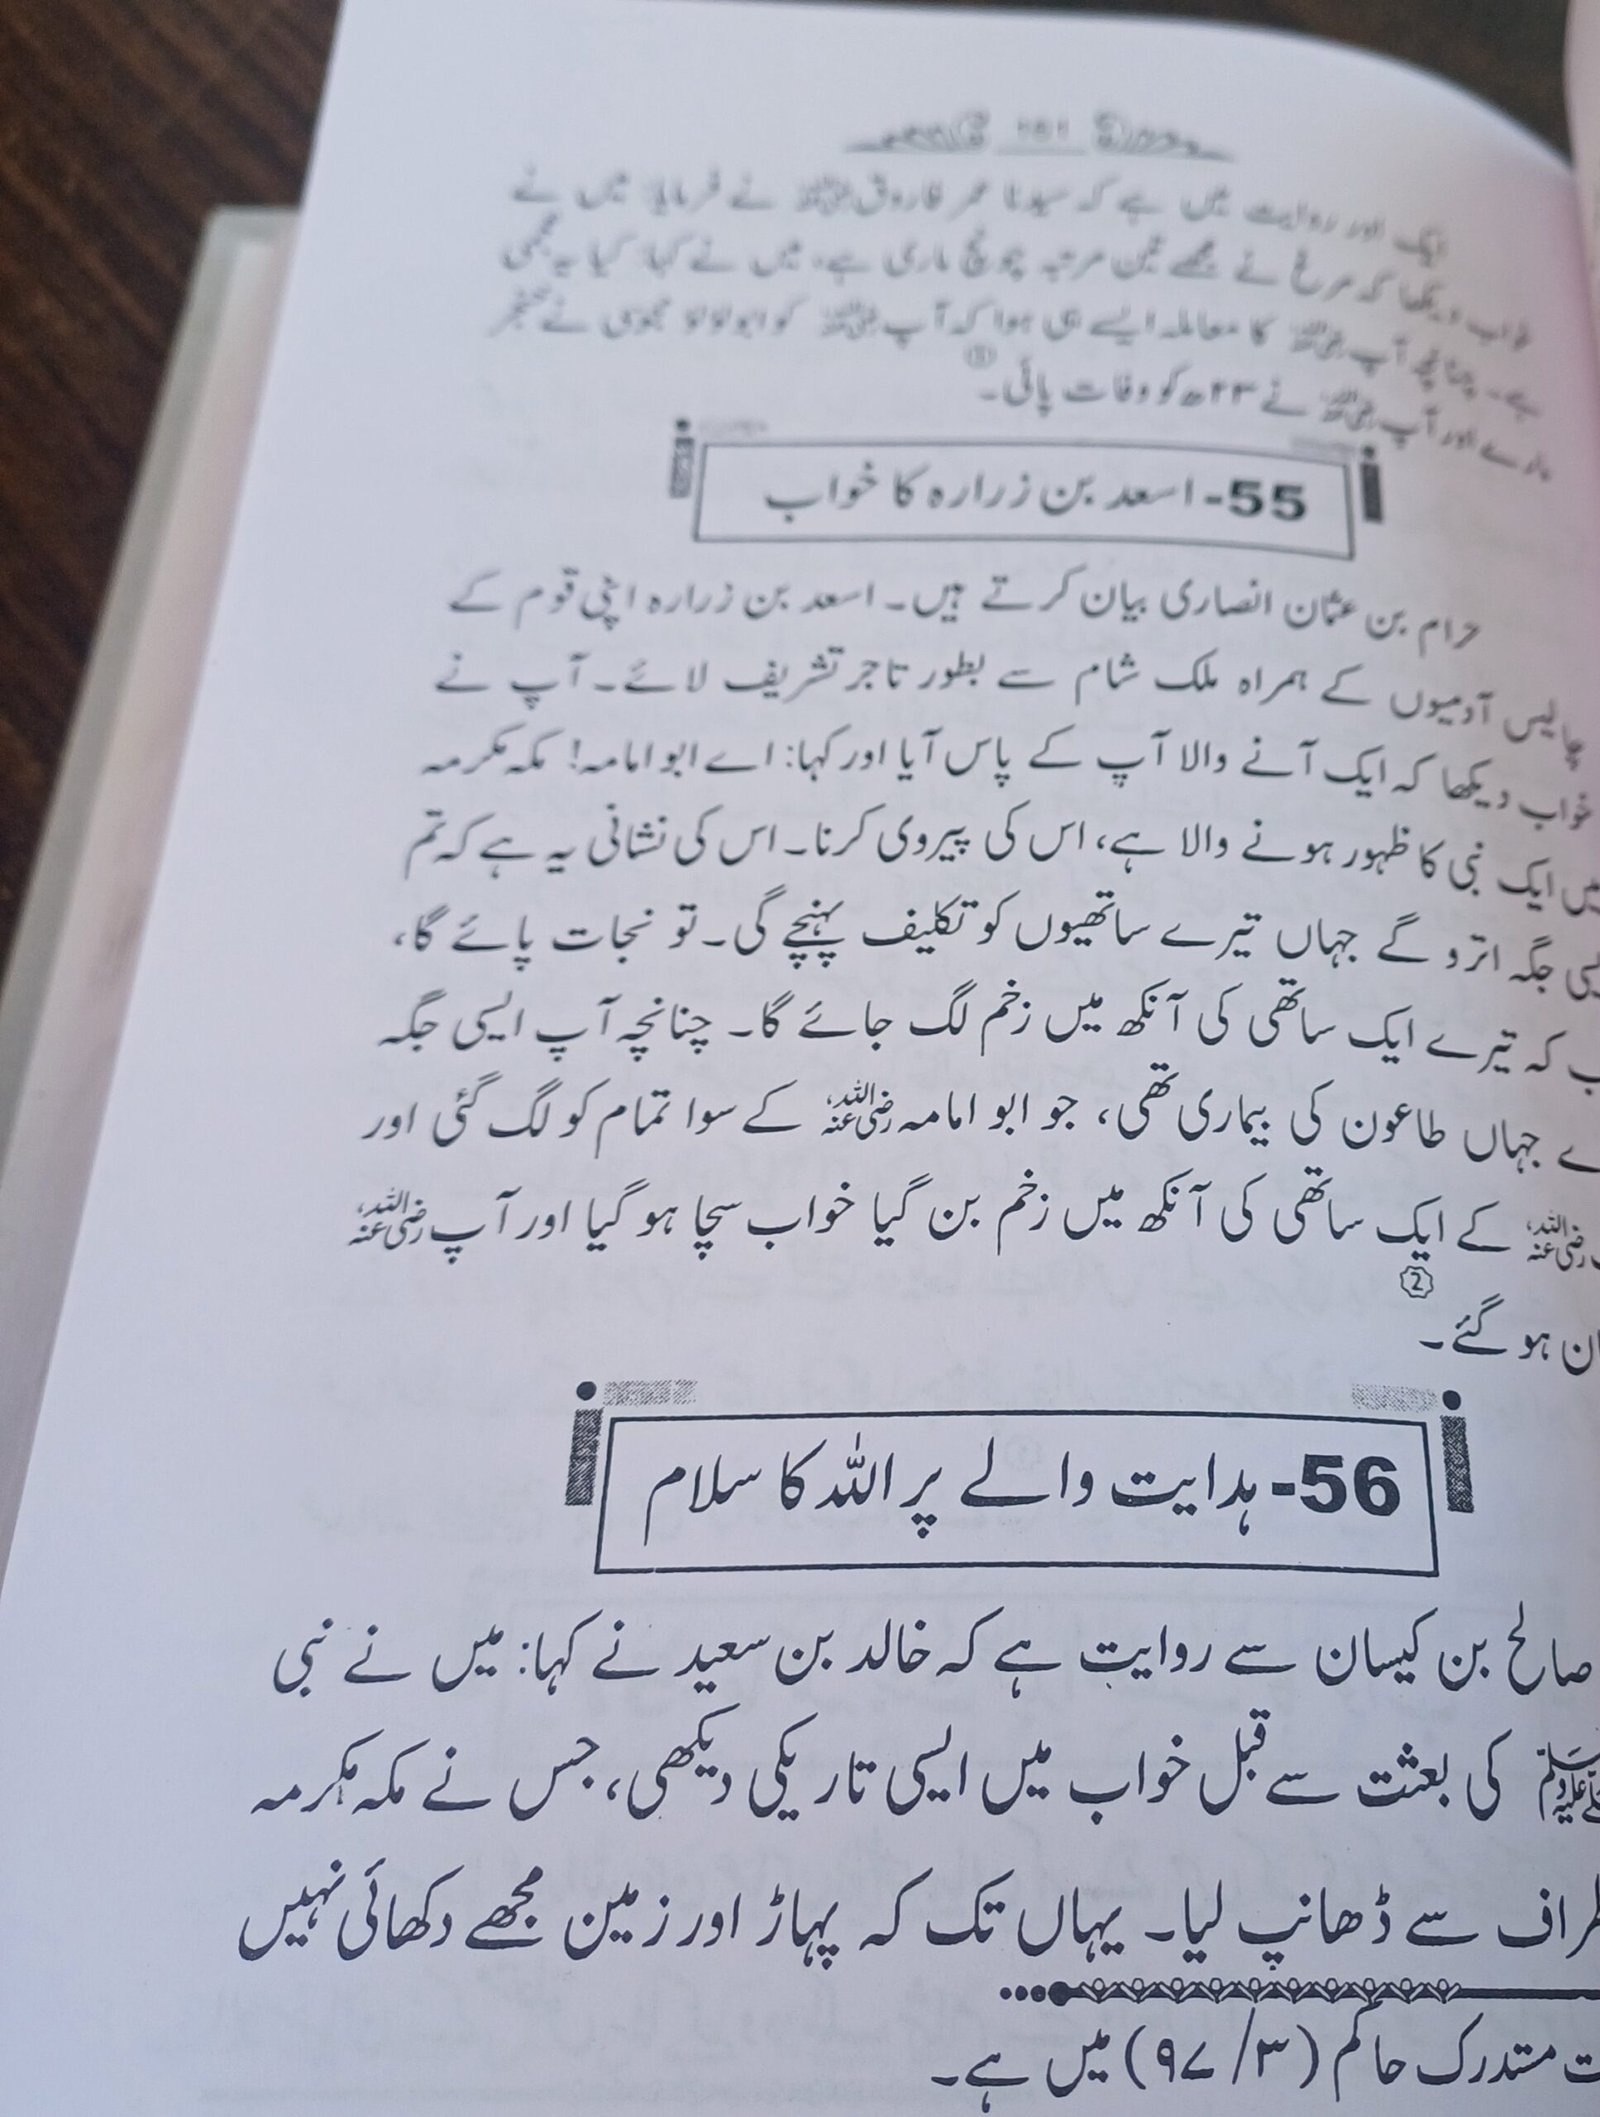 161
ایک اور روایت میں ہے کہ سیدنا عمر فاروق رضی اللہ عنہ نے فرمایا: میں نے
خواب دیکھا کہ مرغ نے مجھے تین مرتبہ چونچ ماری ہے، میں نے کہا: کیا یہ عجمی
ہے۔ چنانچہ آپ رضی اللہ عنہ کا معاملہ ایسے ہی ہوا کہ آپ رضی اللہ عنہ کو ابولؤلؤ مجوسی نے خنجر
مارے اور آپ رضی اللہ عنہ نے ۲۳ھ کو وفات پائی۔ ①
55- اسعد بن زرارہ کا خواب
حرام بن عثمان انصاری بیان کرتے ہیں۔ اسعد بن زرارہ اپنی قوم کے
چالیس آدمیوں کے ہمراہ ملک شام سے بطور تاجر تشریف لائے۔ آپ نے
خواب دیکھا کہ ایک آنے والا آپ کے پاس آیا اور کہا: اے ابو امامہ! مکہ مکرمہ
میں ایک نبی کا ظہور ہونے والا ہے، اس کی پیروی کرنا۔ اس کی نشانی یہ ہے کہ تم
جگہ اترو گے جہاں تیرے ساتھیوں کو تکلیف پہنچے گی۔ تو نجات پائے گا،
کہ تیرے ایک ساتھی کی آنکھ میں زخم لگ جائے گا۔ چنانچہ آپ ایسی جگہ
جہاں طاعون کی بیماری تھی، جو ابو امامہ رضی اللہ عنہ کے سوا تمام کو لگ گئی اور
رضی اللہ عنہ کے ایک ساتھی کی آنکھ میں زخم بن گیا خواب سچا ہو گیا اور آپ رضی اللہ عنہ
ہو گئے۔ ②
56- ہدایت والے پر اللہ کا سلام
صالح بن کیسان سے روایت ہے کہ خالد بن سعید نے کہا: میں نے نبی
ﷺ کی بعثت سے قبل خواب میں ایسی تاریکی دیکھی، جس نے مکہ مکرمہ
سے ڈھانپ لیا۔ یہاں تک کہ پہاڑ اور زمین مجھے دکھائی نہیں
مستدرک حاکم (۳/۹۷) میں ہے۔